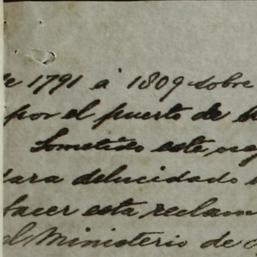 de 1791 á 1809 sobre
por el puerto de
Sometido este
para delucidado
hacer esta reclam
el Ministerio de